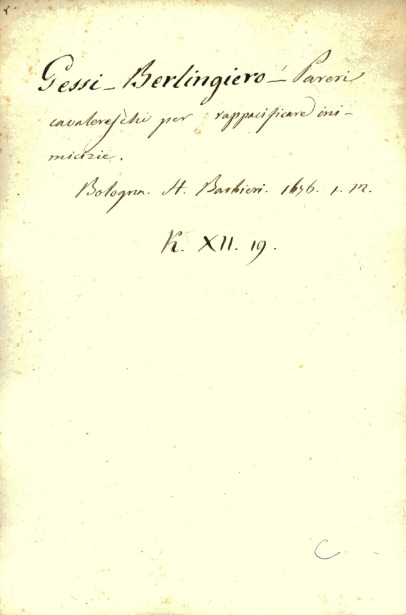 Gessi - Berlingiero - Pareri
cavalereschi per rappacificare ini-
micizie.
Bologna. H. Barbieri. 1676. 1. m.
K. XII. 19.
C